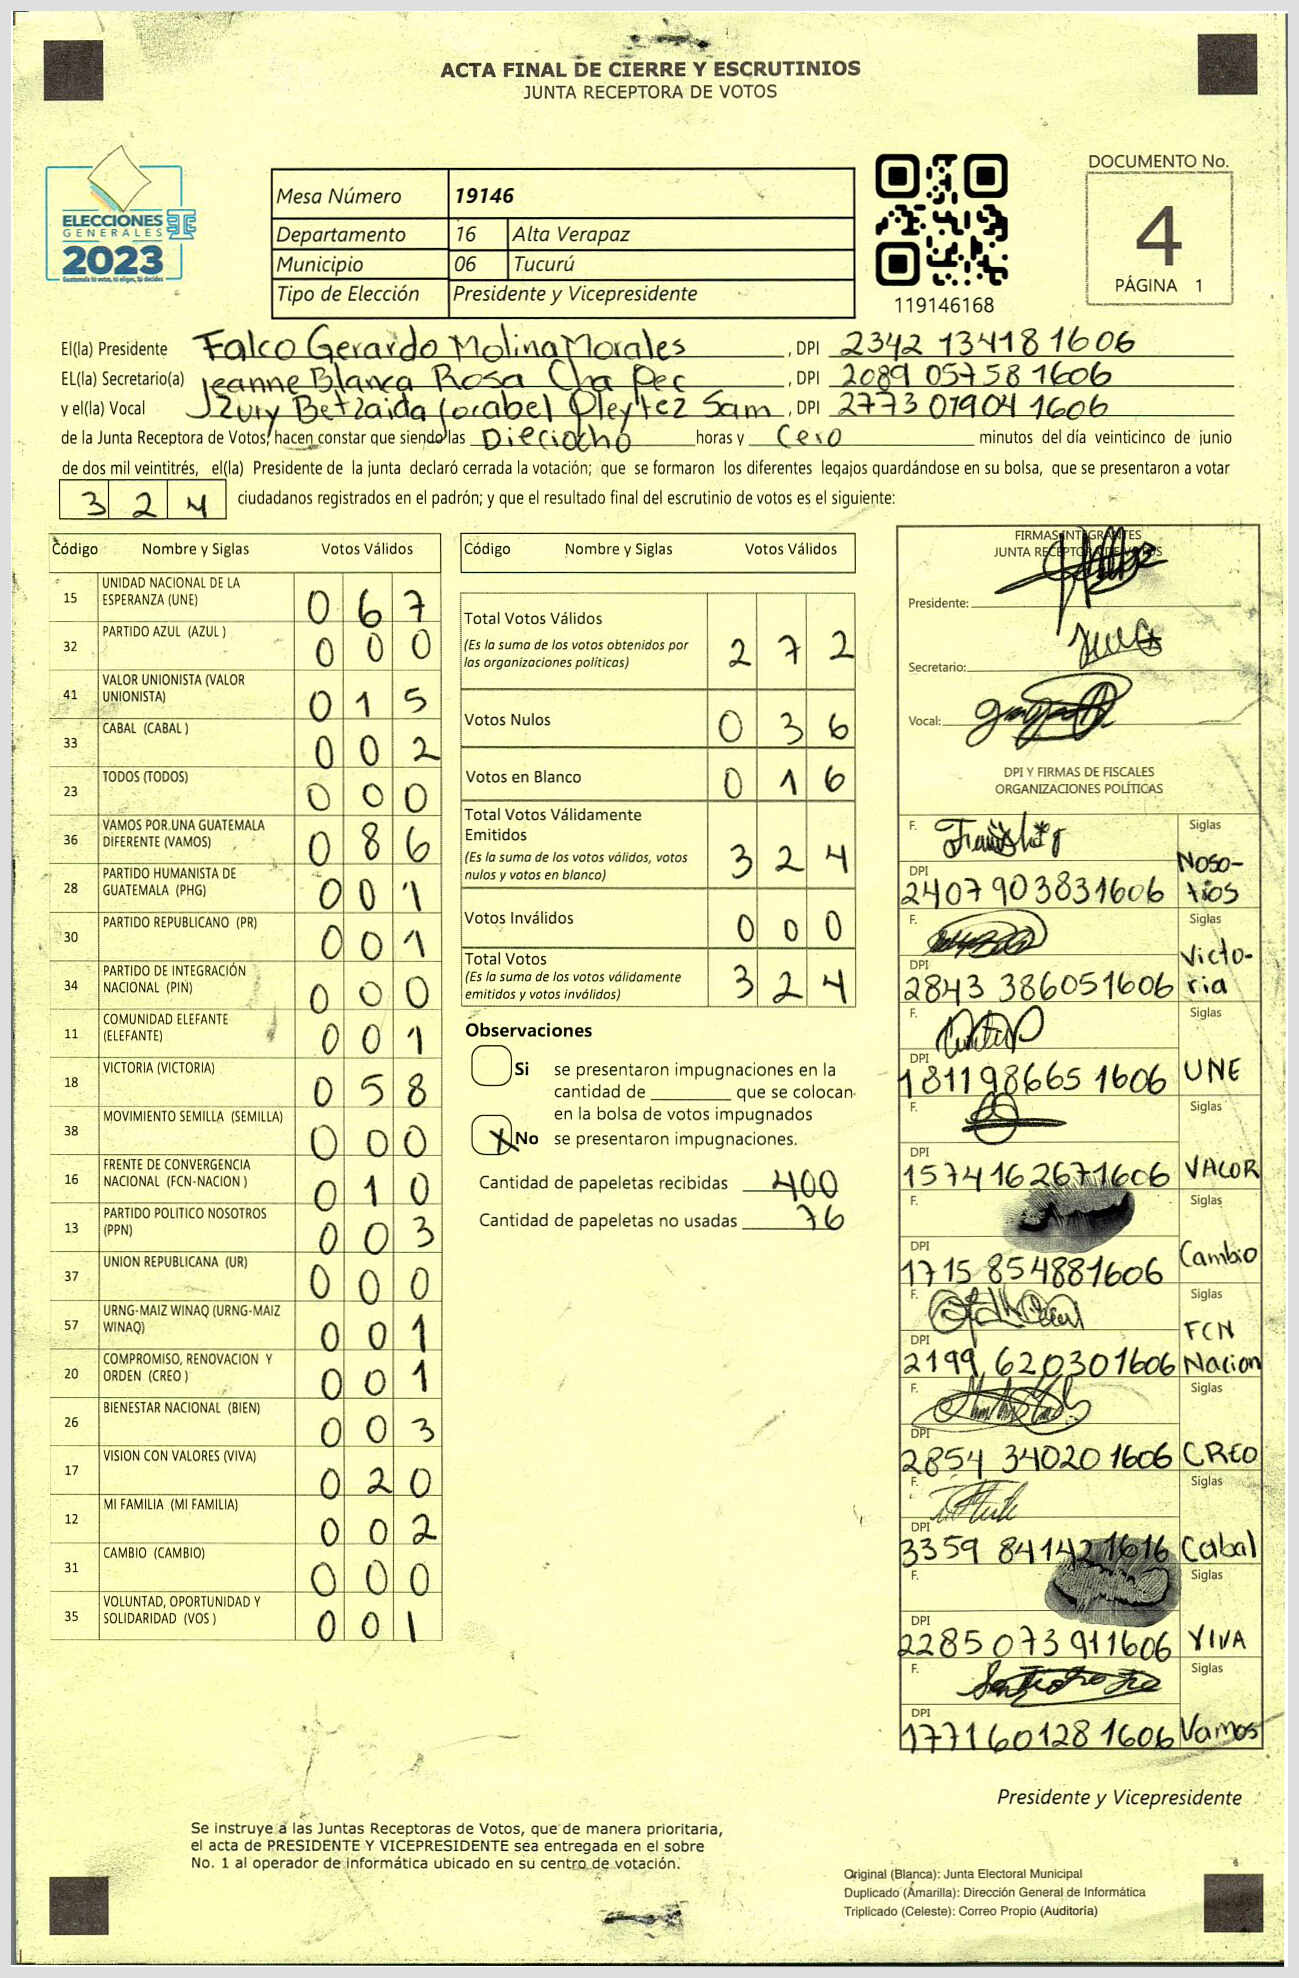 ACTA FINAL DE CIERRE Y ESCRUTINIOS
JUNTA RECEPTORA DE VOTOS
ELECCIONES
GENERALES
2023
Mesa Número 19146
Departamento 16 Alta Verapaz
Municipio 06 Tucurú
Tipo de Elección Presidente y Vicepresidente
119146168
DOCUMENTO No.
4
PÁGINA 1
El(la) Presidente Falco Gerardo Molina Morales , DPI 2342 13418 1606
EL(la) Secretario(a) Jeanne Blanca Rosa Cha Pec , DPI 2089 05758 1606
y el(la) Vocal Izury Betzaida Corabel Pleytez Sam , DPI 2773 01904 1606
de la Junta Receptora de Votos, hacen constar que siendo las Dieciocho horas y Cero minutos del día veinticinco de junio
de dos mil veintitrés, el(la) Presidente de la junta declaró cerrada la votación; que se formaron los diferentes legajos quardándose en su bolsa, que se presentaron a votar
3 2 4 ciudadanos registrados en el padrón; y que el resultado final del escrutinio de votos es el siguiente:
Código Nombre y Siglas Votos Válidos
15 UNIDAD NACIONAL DE LA ESPERANZA (UNE) 0 6 7
32 PARTIDO AZUL (AZUL ) 0 0 0
41 VALOR UNIONISTA (VALOR UNIONISTA) 0 1 5
33 CABAL (CABAL ) 0 0 2
23 TODOS (TODOS) 0 0 0
36 VAMOS POR.UNA GUATEMALA DIFERENTE (VAMOS) 0 8 6
28 PARTIDO HUMANISTA DE GUATEMALA (PHG) 0 0 1
30 PARTIDO REPUBLICANO (PR) 0 0 1
34 PARTIDO DE INTEGRACIÓN NACIONAL (PIN) 0 0 0
11 COMUNIDAD ELEFANTE (ELEFANTE) 0 0 1
18 VICTORIA (VICTORIA) 0 5 8
38 MOVIMIENTO SEMILLA (SEMILLA) 0 0 0
16 FRENTE DE CONVERGENCIA NACIONAL (FCN-NACION ) 0 1 0
13 PARTIDO POLITICO NOSOTROS (PPN) 0 0 3
37 UNION REPUBLICANA (UR) 0 0 0
57 URNG-MAIZ WINAQ (URNG-MAIZ WINAQ) 0 0 1
20 COMPROMISO, RENOVACION Y ORDEN (CREO ) 0 0 1
26 BIENESTAR NACIONAL (BIEN) 0 0 3
17 VISION CON VALORES (VIVA) 0 2 0
12 MI FAMILIA (MI FAMILIA) 0 0 2
31 CAMBIO (CAMBIO) 0 0 0
35 VOLUNTAD, OPORTUNIDAD Y SOLIDARIDAD (VOS ) 0 0 1
Código Nombre y Siglas Votos Válidos
Total Votos Válidos 2 7 2
(Es la suma de los votos obtenidos por
las organizaciones políticas)
Votos Nulos 0 3 6
Votos en Blanco 0 1 6
Total Votos Válidamente
Emitidos 3 2 4
(Es la suma de los votos válidos, votos
nulos y votos en blanco)
Votos Inválidos 0 0 0
Total Votos 3 2 4
(Es la suma de los votos válidamente
emitidos y votos inválidos)
Observaciones
Si se presentaron impugnaciones en la
cantidad de ________ que se colocan
en la bolsa de votos impugnados
X No se presentaron impugnaciones.
Cantidad de papeletas recibidas 400
Cantidad de papeletas no usadas 76
FIRMAS INTEGRANTES
JUNTA RECEPTORA DE VOTOS
Presidente:
Secretario:
Vocal:
DPI Y FIRMAS DE FISCALES
ORGANIZACIONES POLÍTICAS
F. Siglas
Noso-
tros
DPI
2407 90383 1606
F. Siglas
Victo-
ria
DPI
2843 38605 1606
F. Siglas
DPI
1811 98665 1606 UNE
F. Siglas
DPI
1574 16267 1606 VALOR
F. Siglas
DPI
1715 85488 1606 Cambio
F. Siglas
FCN
DPI
2199 62030 1606 Nacion
F. Siglas
DPI
2854 34020 1606 CREO
F. Siglas
DPI
3359 84142 1616 Cabal
F. Siglas
DPI
2285 07391 1606 VIVA
F. Siglas
DPI
1771 60128 1606 Vamos
Presidente y Vicepresidente
Se instruye a las Juntas Receptoras de Votos, que de manera prioritaria,
el acta de PRESIDENTE Y VICEPRESIDENTE sea entregada en el sobre
No. 1 al operador de informática ubicado en su centro de votación.
Original (Blanca): Junta Electoral Municipal
Duplicado (Amarilla): Dirección General de Informática
Triplicado (Celeste): Correo Propio (Auditoría)